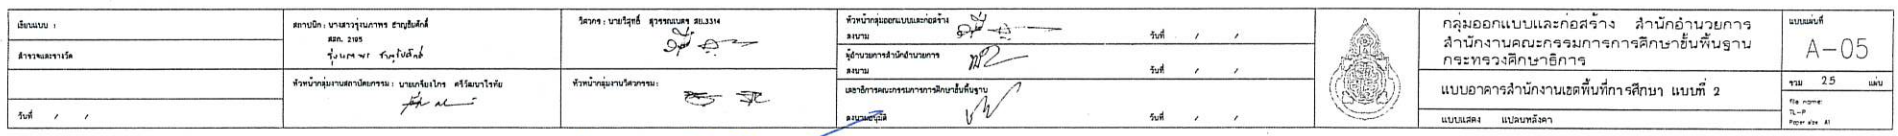 เขียนแบบ :
สำรวจและรางวัด
วันที่ / /
สถาปนิก : นางสาวรุ่งนภาพร ชาญชัยศักดิ์
สถก. 2195
หัวหน้ากลุ่มงานสถาปัตยกรรม : นายเกรียงไกร ศรีวัฒนาโรทัย
วิศวกร : นายวิสุทธิ์ สุวรรณเนตร สย.3314
หัวหน้ากลุ่มงานวิศวกรรม:
หัวหน้ากลุ่มออกแบบและก่อสร้าง
ลงนาม วันที่ / /
ผู้อำนวยการสำนักอำนวยการ
ลงนาม วันที่ / /
เลขาธิการคณะกรรมการการศึกษาขั้นพื้นฐาน
ลงนามอนุมัติ วันที่ / /
กลุ่มออกแบบและก่อสร้าง สำนักอำนวยการ
สำนักงานคณะกรรมการการศึกษาขั้นพื้นฐาน
กระทรวงศึกษาธิการ
แบบอาคารสำนักงานเขตพื้นที่การศึกษา แบบที่ 2
แบบแสดง แปลนหลังคา
แบบแผ่นที่
A-05
รวม 25 แผ่น
file name:
TL-P
Paper size A1